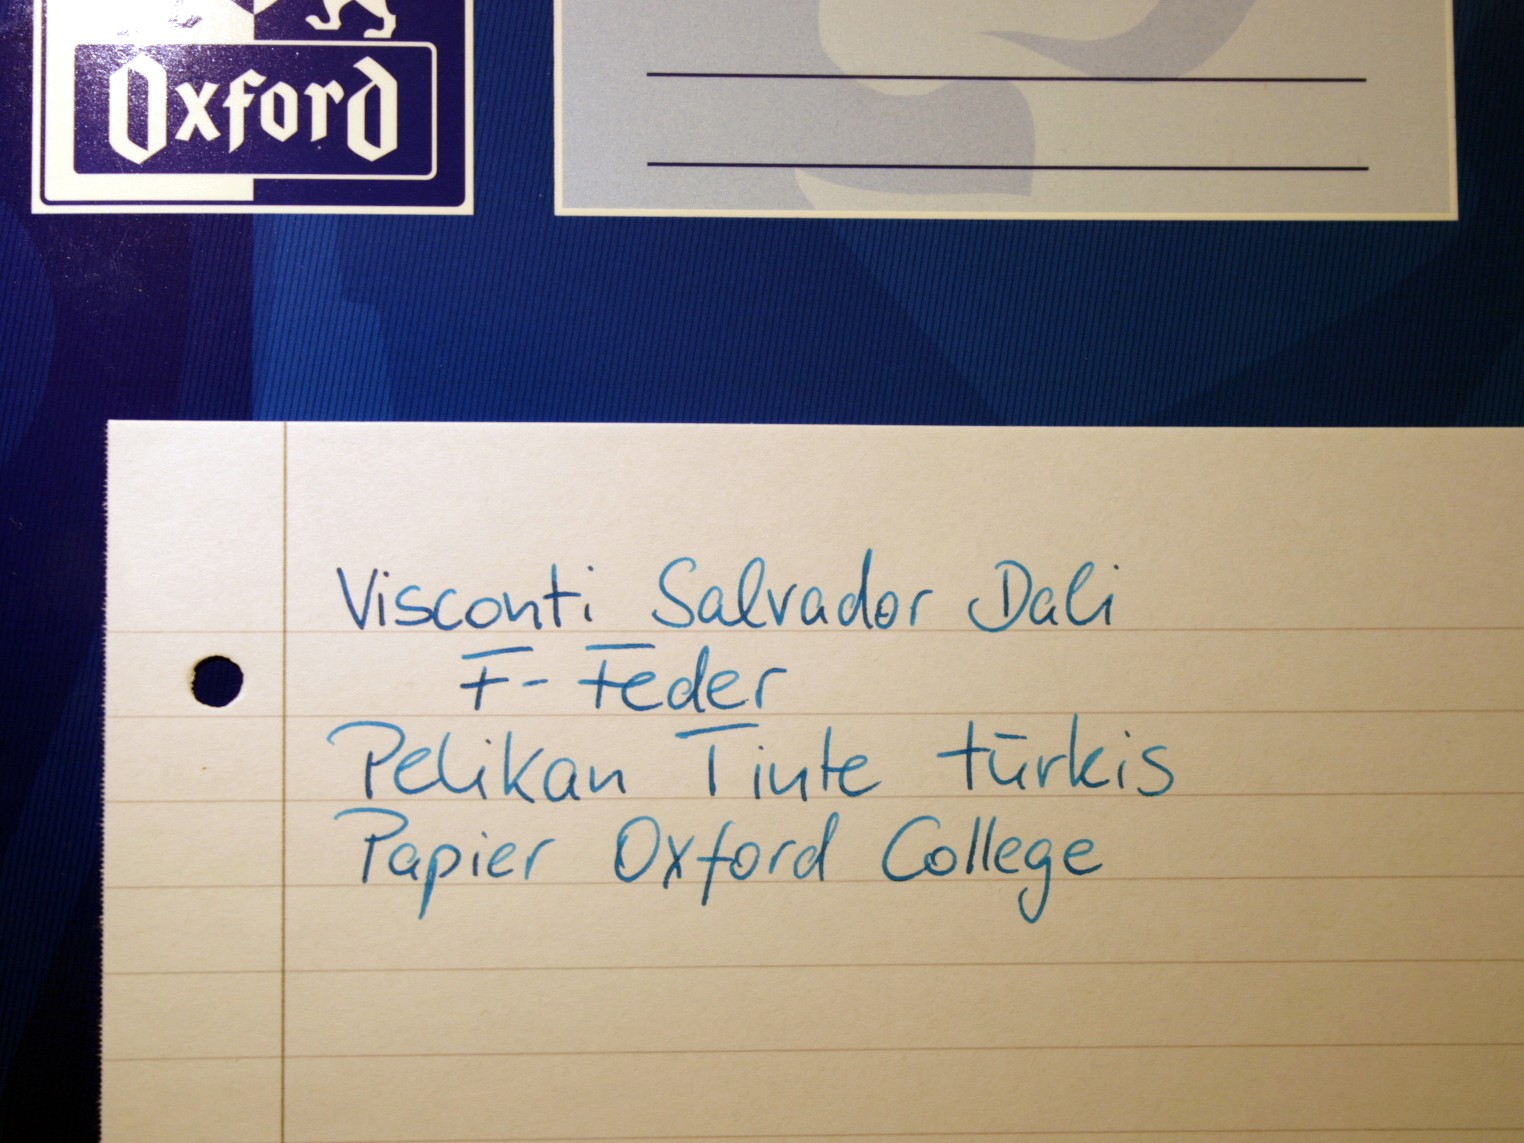 Oxford
Visconti Salvador Dali
F-Feder
Pelikan Tinte türkis
Papier Oxford College